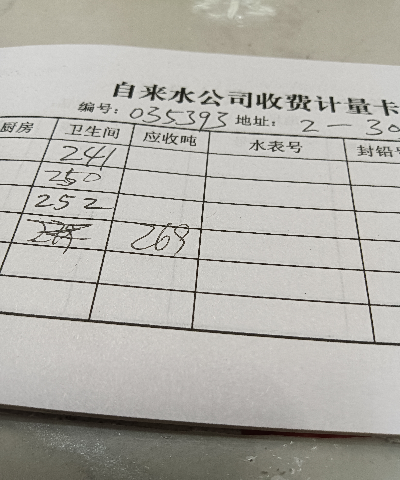 自来水公司收费计量卡
编号: 035393 地址: 2-30
厨房 卫生间 应收吨 水表号 封铅号
241
250
252
269